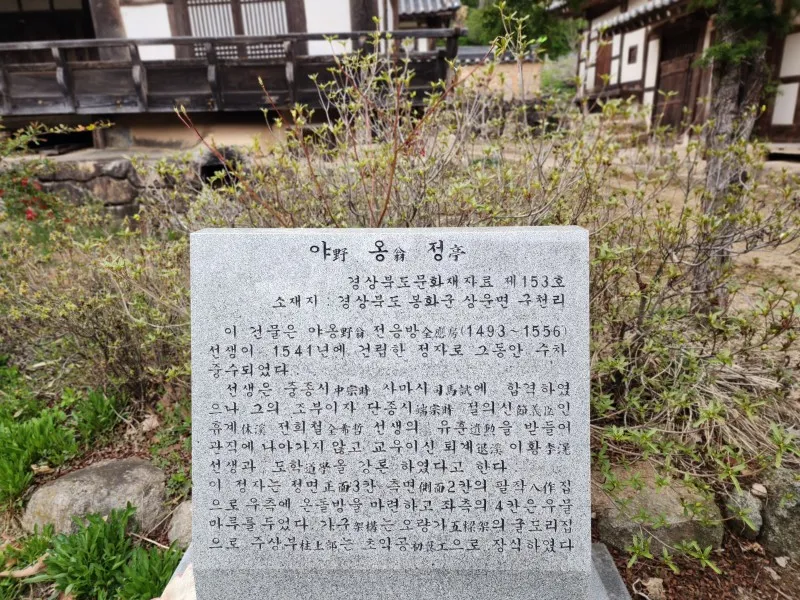 야野 옹翁 정亭
경상북도문화재자료 제153호
소재지 : 경상북도 봉화군 상운면 구천리
이 건물은 야옹野翁 전응방全應房(1493~1556)
선생이 1541년에 건립한 정자로 그동안 수차
중수되었다.
선생은 중종시中宗時 사마시司馬試에 합격하였
으나 그의 조부이자 단종시端宗時 절의신節義臣인
휴계休溪 전희철全希哲 선생의 유훈을 받들어
관직에 나아가지 않고 교우이신 퇴계退溪 이황李滉
선생과 도학道學을 강론 하였다고 한다.
이 정자는 정면正面3칸 측면側面2칸의 팔작八作집
으로 우측에 온돌방을 마련하고 좌측의 4칸은 우물
마루를 두었다. 가구架構는 오량가五樑架의 굴도리집
으로 주상부柱上部는 초익공初翼工으로 장식하였다